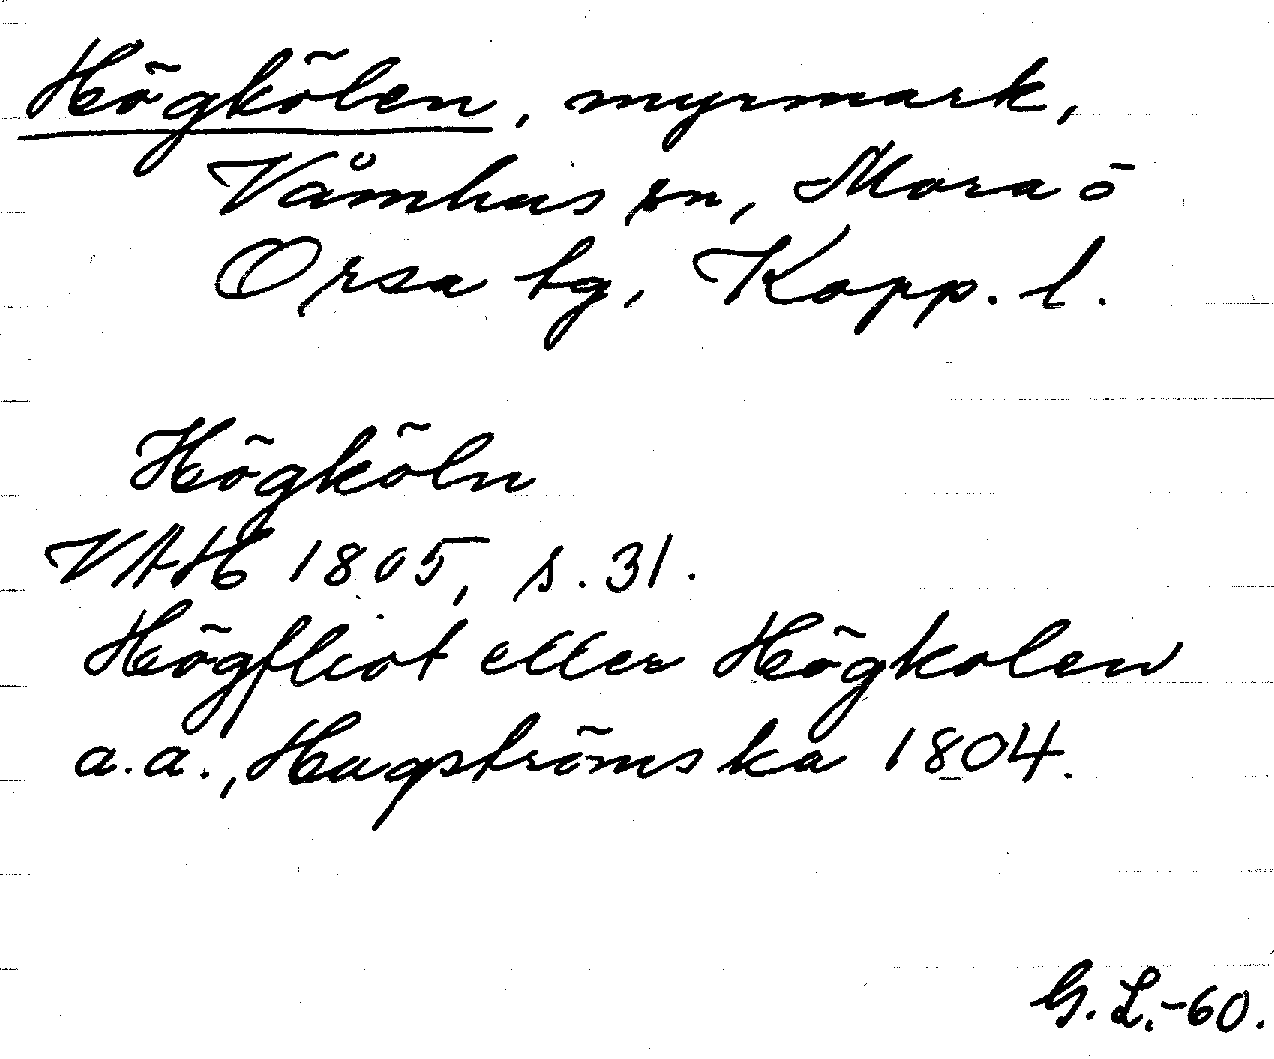 Högkölen, myrmark,
Våmhus sn, Mora o
Orsa tg, Kopp. l.
Högköln
VAH 1805, s. 31.
Högfliot eller Högkolen
a.a., Hagströmska 1804.
G. L.-60.